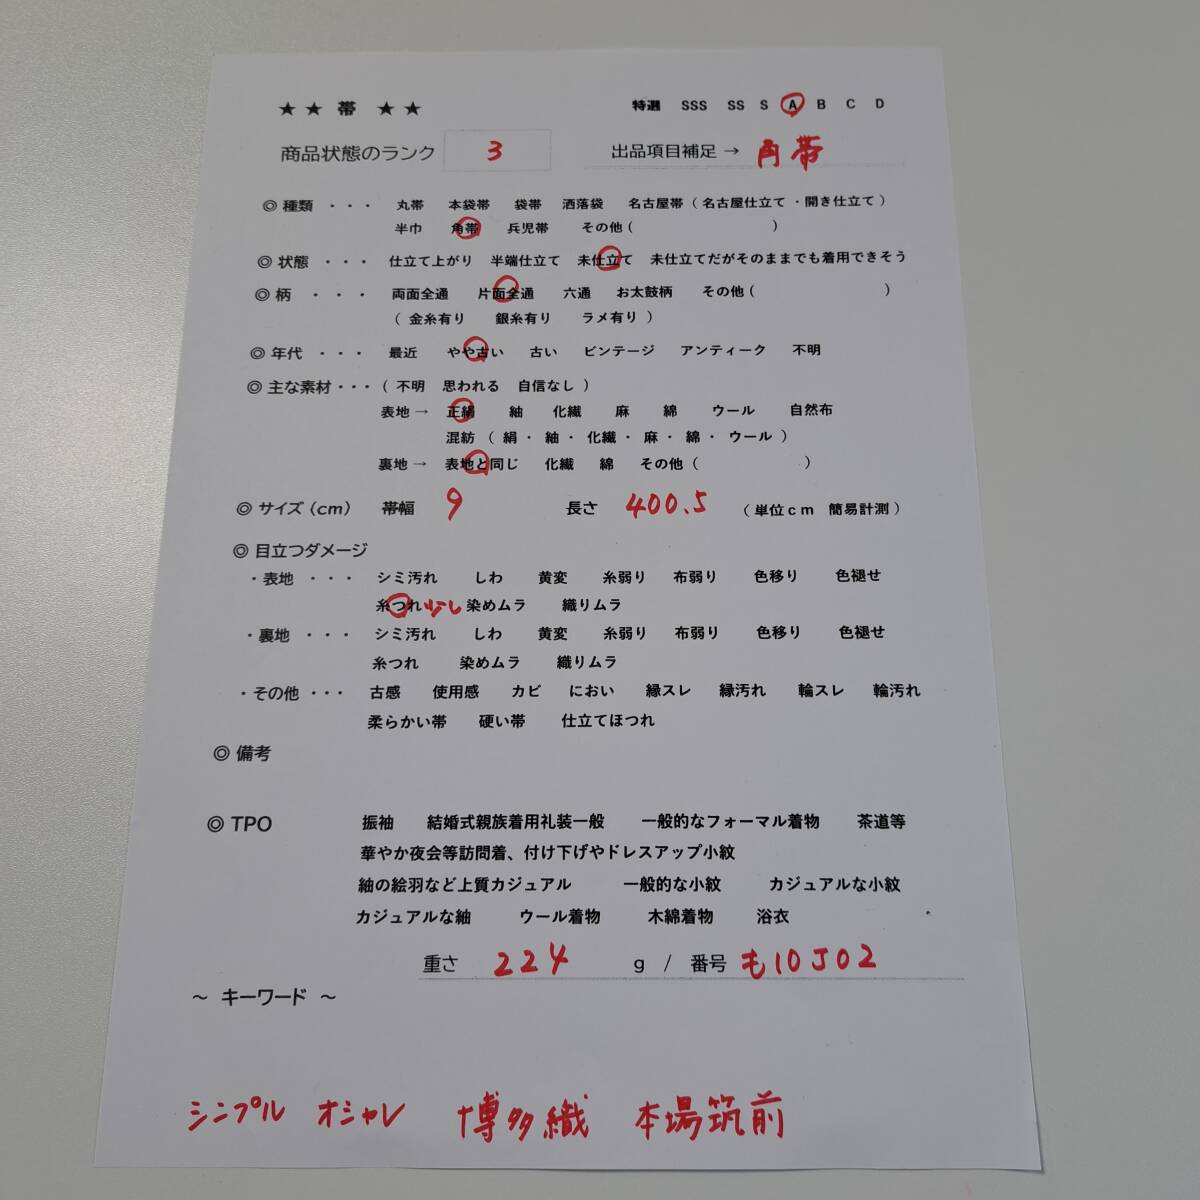 ★ ★ 帯 ★ ★ 特選 SSS SS S A B C D
商品状態のランク 3 出品項目補足 → 角帯
◎ 種類 ・・・ 丸帯 本袋帯 袋帯 洒落袋 名古屋帯（名古屋仕立て・開き仕立て）
半巾 角帯 兵児帯 その他（ ）
◎ 状態 ・・・ 仕立て上がり 半端仕立て 未仕立て 未仕立てだがそのままでも着用できそう
◎ 柄 ・・・ 両面全通 片面全通 六通 お太鼓柄 その他（ ）
（ 金糸有り 銀糸有り ラメ有り ）
◎ 年代 ・・・ 最近 やや古い 古い ビンテージ アンティーク 不明
◎ 主な素材・・・（ 不明 思われる 自信なし ）
表地 → 正絹 紬 化繊 麻 綿 ウール 自然布
混紡 （ 絹・ 紬・ 化繊・ 麻・ 綿・ ウール ）
裏地 → 表地と同じ 化繊 綿 その他（ ）
◎ サイズ（cm） 帯幅 9 長さ 400.5 （単位cm 簡易計測）
◎ 目立つダメージ
・表地 ・・・ シミ汚れ しわ 黄変 糸弱り 布弱り 色移り 色褪せ
糸つれ 少し 染めムラ 織りムラ
・裏地 ・・・ シミ汚れ しわ 黄変 糸弱り 布弱り 色移り 色褪せ
糸つれ 染めムラ 織りムラ
・その他 ・・・ 古感 使用感 カビ におい 縁スレ 縁汚れ 輪スレ 輪汚れ
柔らかい帯 硬い帯 仕立てほつれ
◎ 備考
◎ TPO 振袖 結婚式親族着用礼装一般 一般的なフォーマル着物 茶道等
華やか夜会等訪問着、付け下げやドレスアップ小紋
紬の絵羽など上質カジュアル 一般的な小紋 カジュアルな小紋
カジュアルな紬 ウール着物 木綿着物 浴衣
重さ 224 g / 番号 も10J02
～ キーワード ～
シンプル オシャレ 博多織 本場筑前